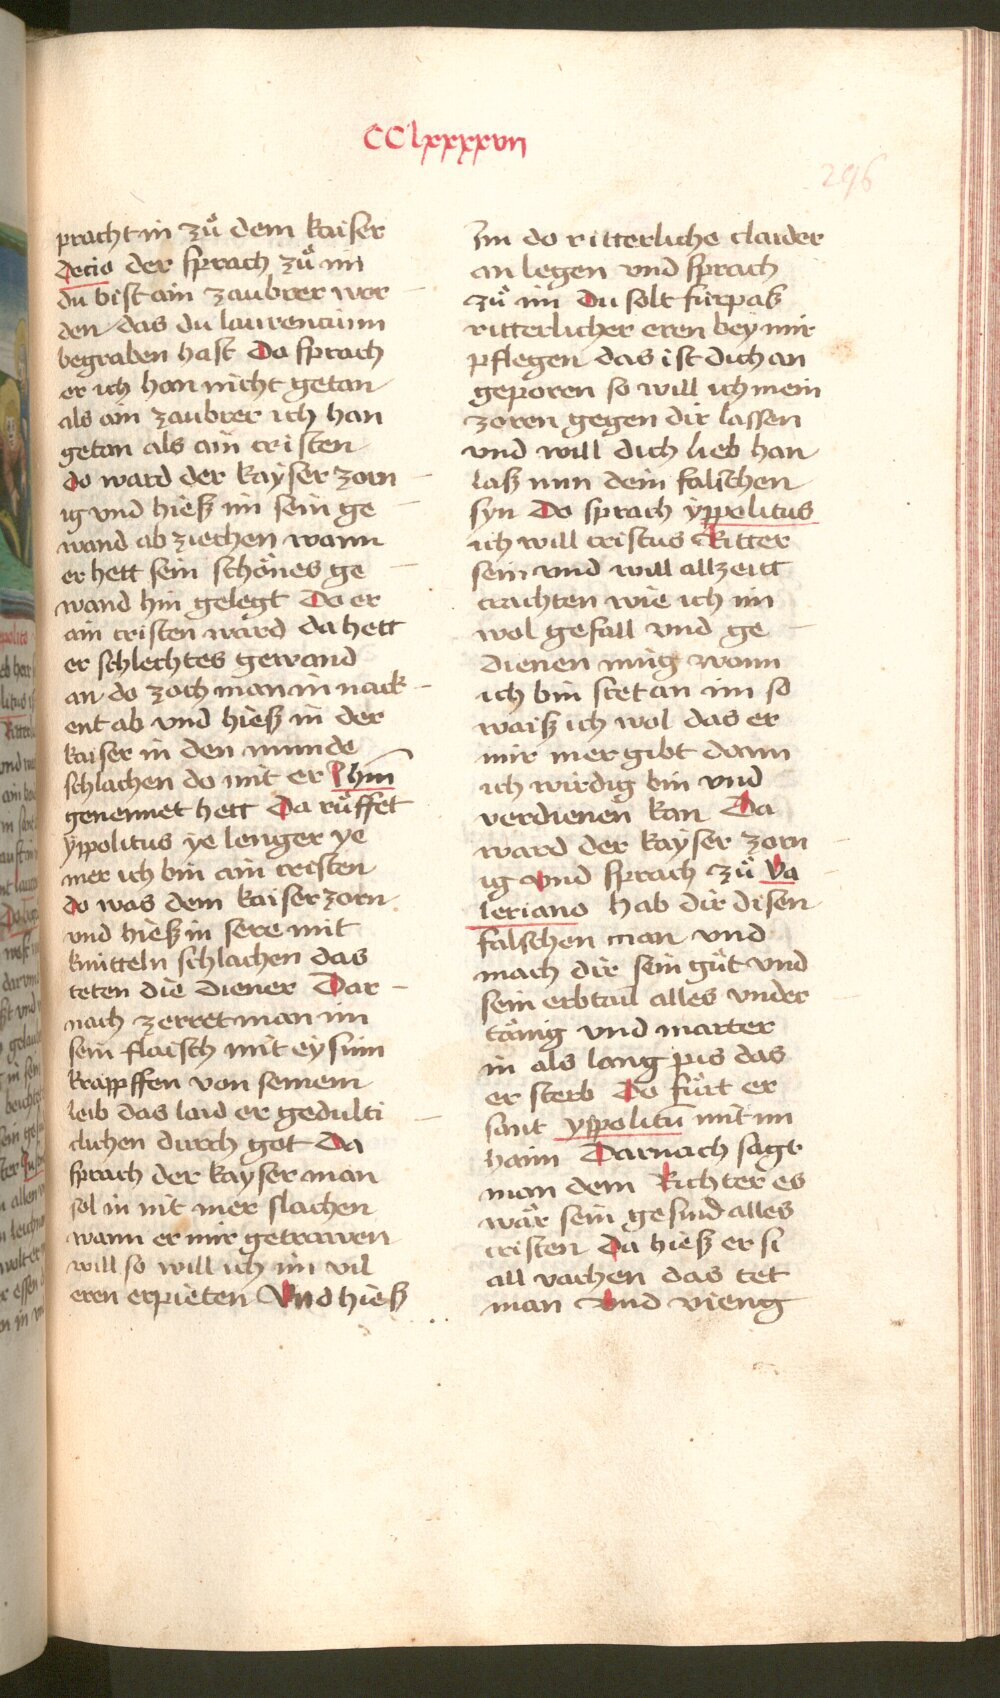 CClxxxxvii
296
pracht in zů dem kaiser
decio der sprach zů im
du bist ain zaubrer wor
den das du laurencium
begraben hast Do sprach
er ich han nicht getan
als ain zaubrer ich han
getan als ain cristen
do ward der kayser zorn
ig vnd hieß im sein ge
wand ab ziechen wann
er hett sein schönes ge
wand hin gelegt Do er
ain cristen ward da hett
er schlechtes gewand
an do zoch man in nack
ent ab vnd hieß in der
kaiser in den munde
schlachen do mit er Jhm
genennet hett Da růffet
ypolitus ye lenger ye
mer ich bin ain cristen
do was dem kaiser zorn
vnd hieß in sere mit
knitteln schlachen das
teten die diener Dar
nach zerret man im
sein flaisch mit eysnin
krappffen von seinem
leib das laid er gedulti
clichen durch got Da
sprach der kayser man
sol in nit mer slachen
wann er mir getrawen
will so will ich im vil
eren erpieten Vnd hieß
Im do ritterliche claider
an legen vnd sprach
zů im Du solt fürpaß
ritterlicher eren bey mir
pflegen das ist dich an
geporen so will ich mein
zoren gegen dir lassen
vnd will dich lieb han
laß nun dein falschen
syn Do sprach yppolitus
ich will cristus Ritter
sein vnd will allzeitt
trachten wie ich im
wol gefall vnd ge
dienen mug wann
ich bin stet an im so
waiß ich wol das er
mir mer gibt dann
ich wirdig bin vnd
verdienen kan Da
ward der kayser zorn
ig vnd sprach zů Va
leriano hab dir disen
falschen man vnd
mach dir sein gůt vnd
sein erbtail alles vnder
tänig vnd marter
in als lang pis das
er sterb Do fürt er
sant yppolitū mit im
haim Darnach sagt
man dem Richter es
wär sein gesind alles
cristen Da hieß er si
all vachen das tet
man Vnd vieng